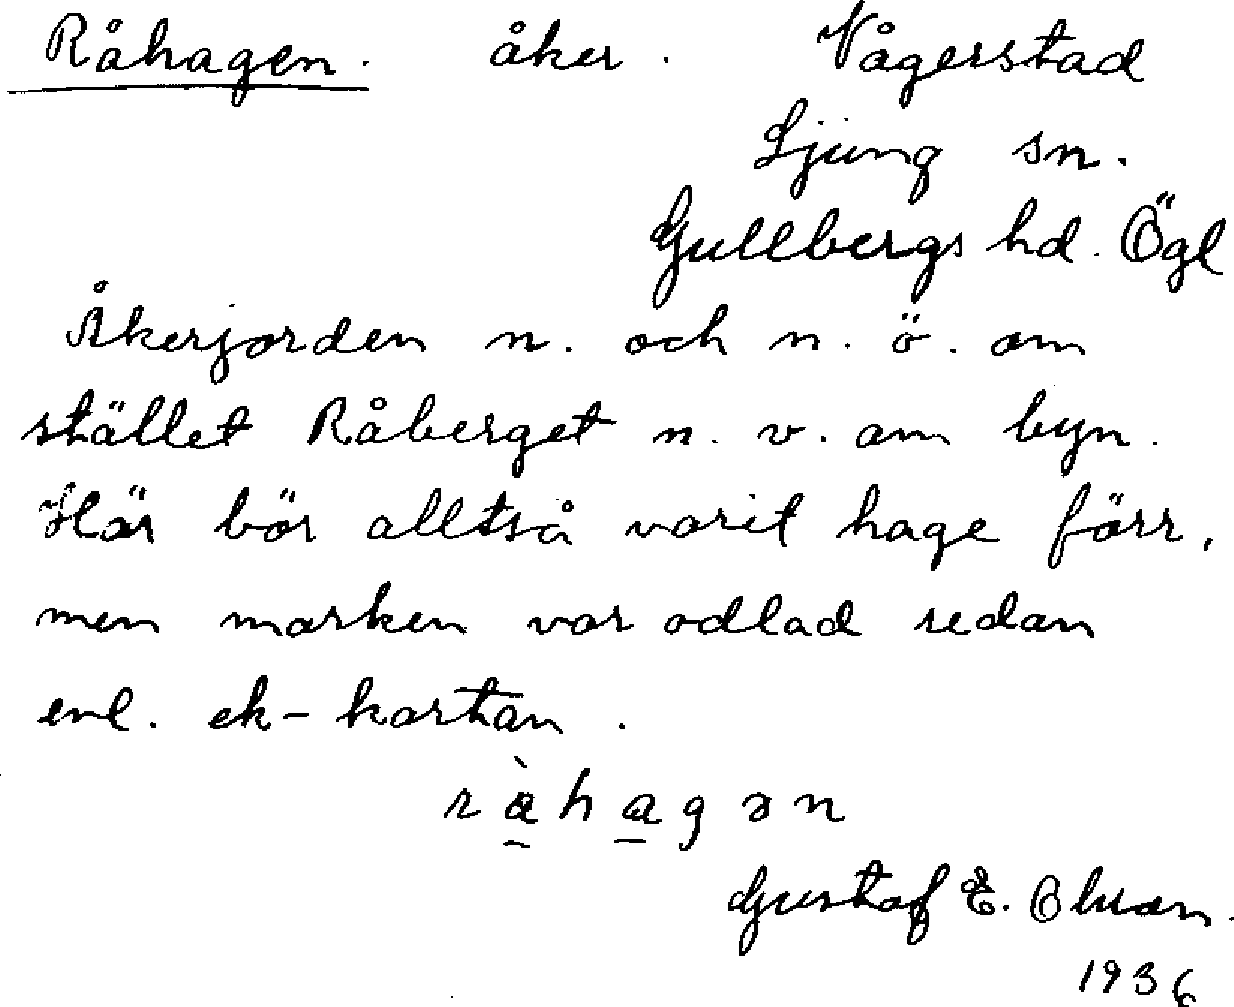 Råhagen. åker. Vågerstad
Ljung sn.
Gullbergs hd. Ögl
Åkerjorden n. och n. ö. om
stället Råberget n. v. om byn.
Här bör alltså varit hage förr,
men marken var odlad redan
enl. ek-kartan.
Gustaf E.
1936